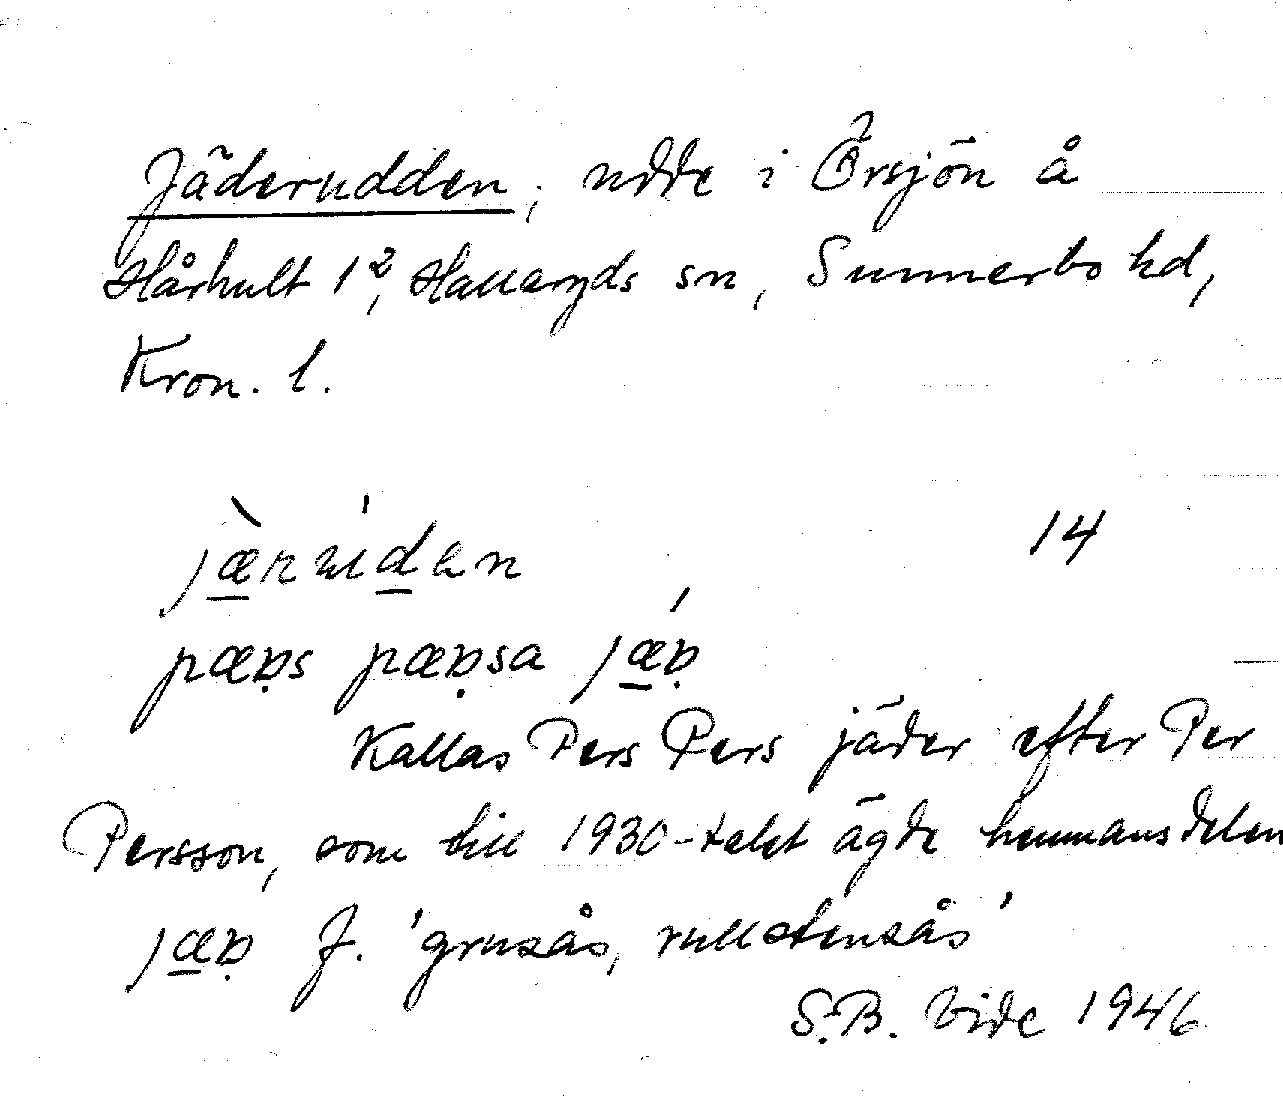 Jäderudden, udde i Örsjön å
Hårhult 1², Hallaryds sn, Sunnerbo hd,
Kron. l.
14
Kallas Pers Pers jäder efter Per
Persson, som till 1930-talet ägde hemmansdelen
f. 'grusås, rullstensås'
S.B. Vide 1946